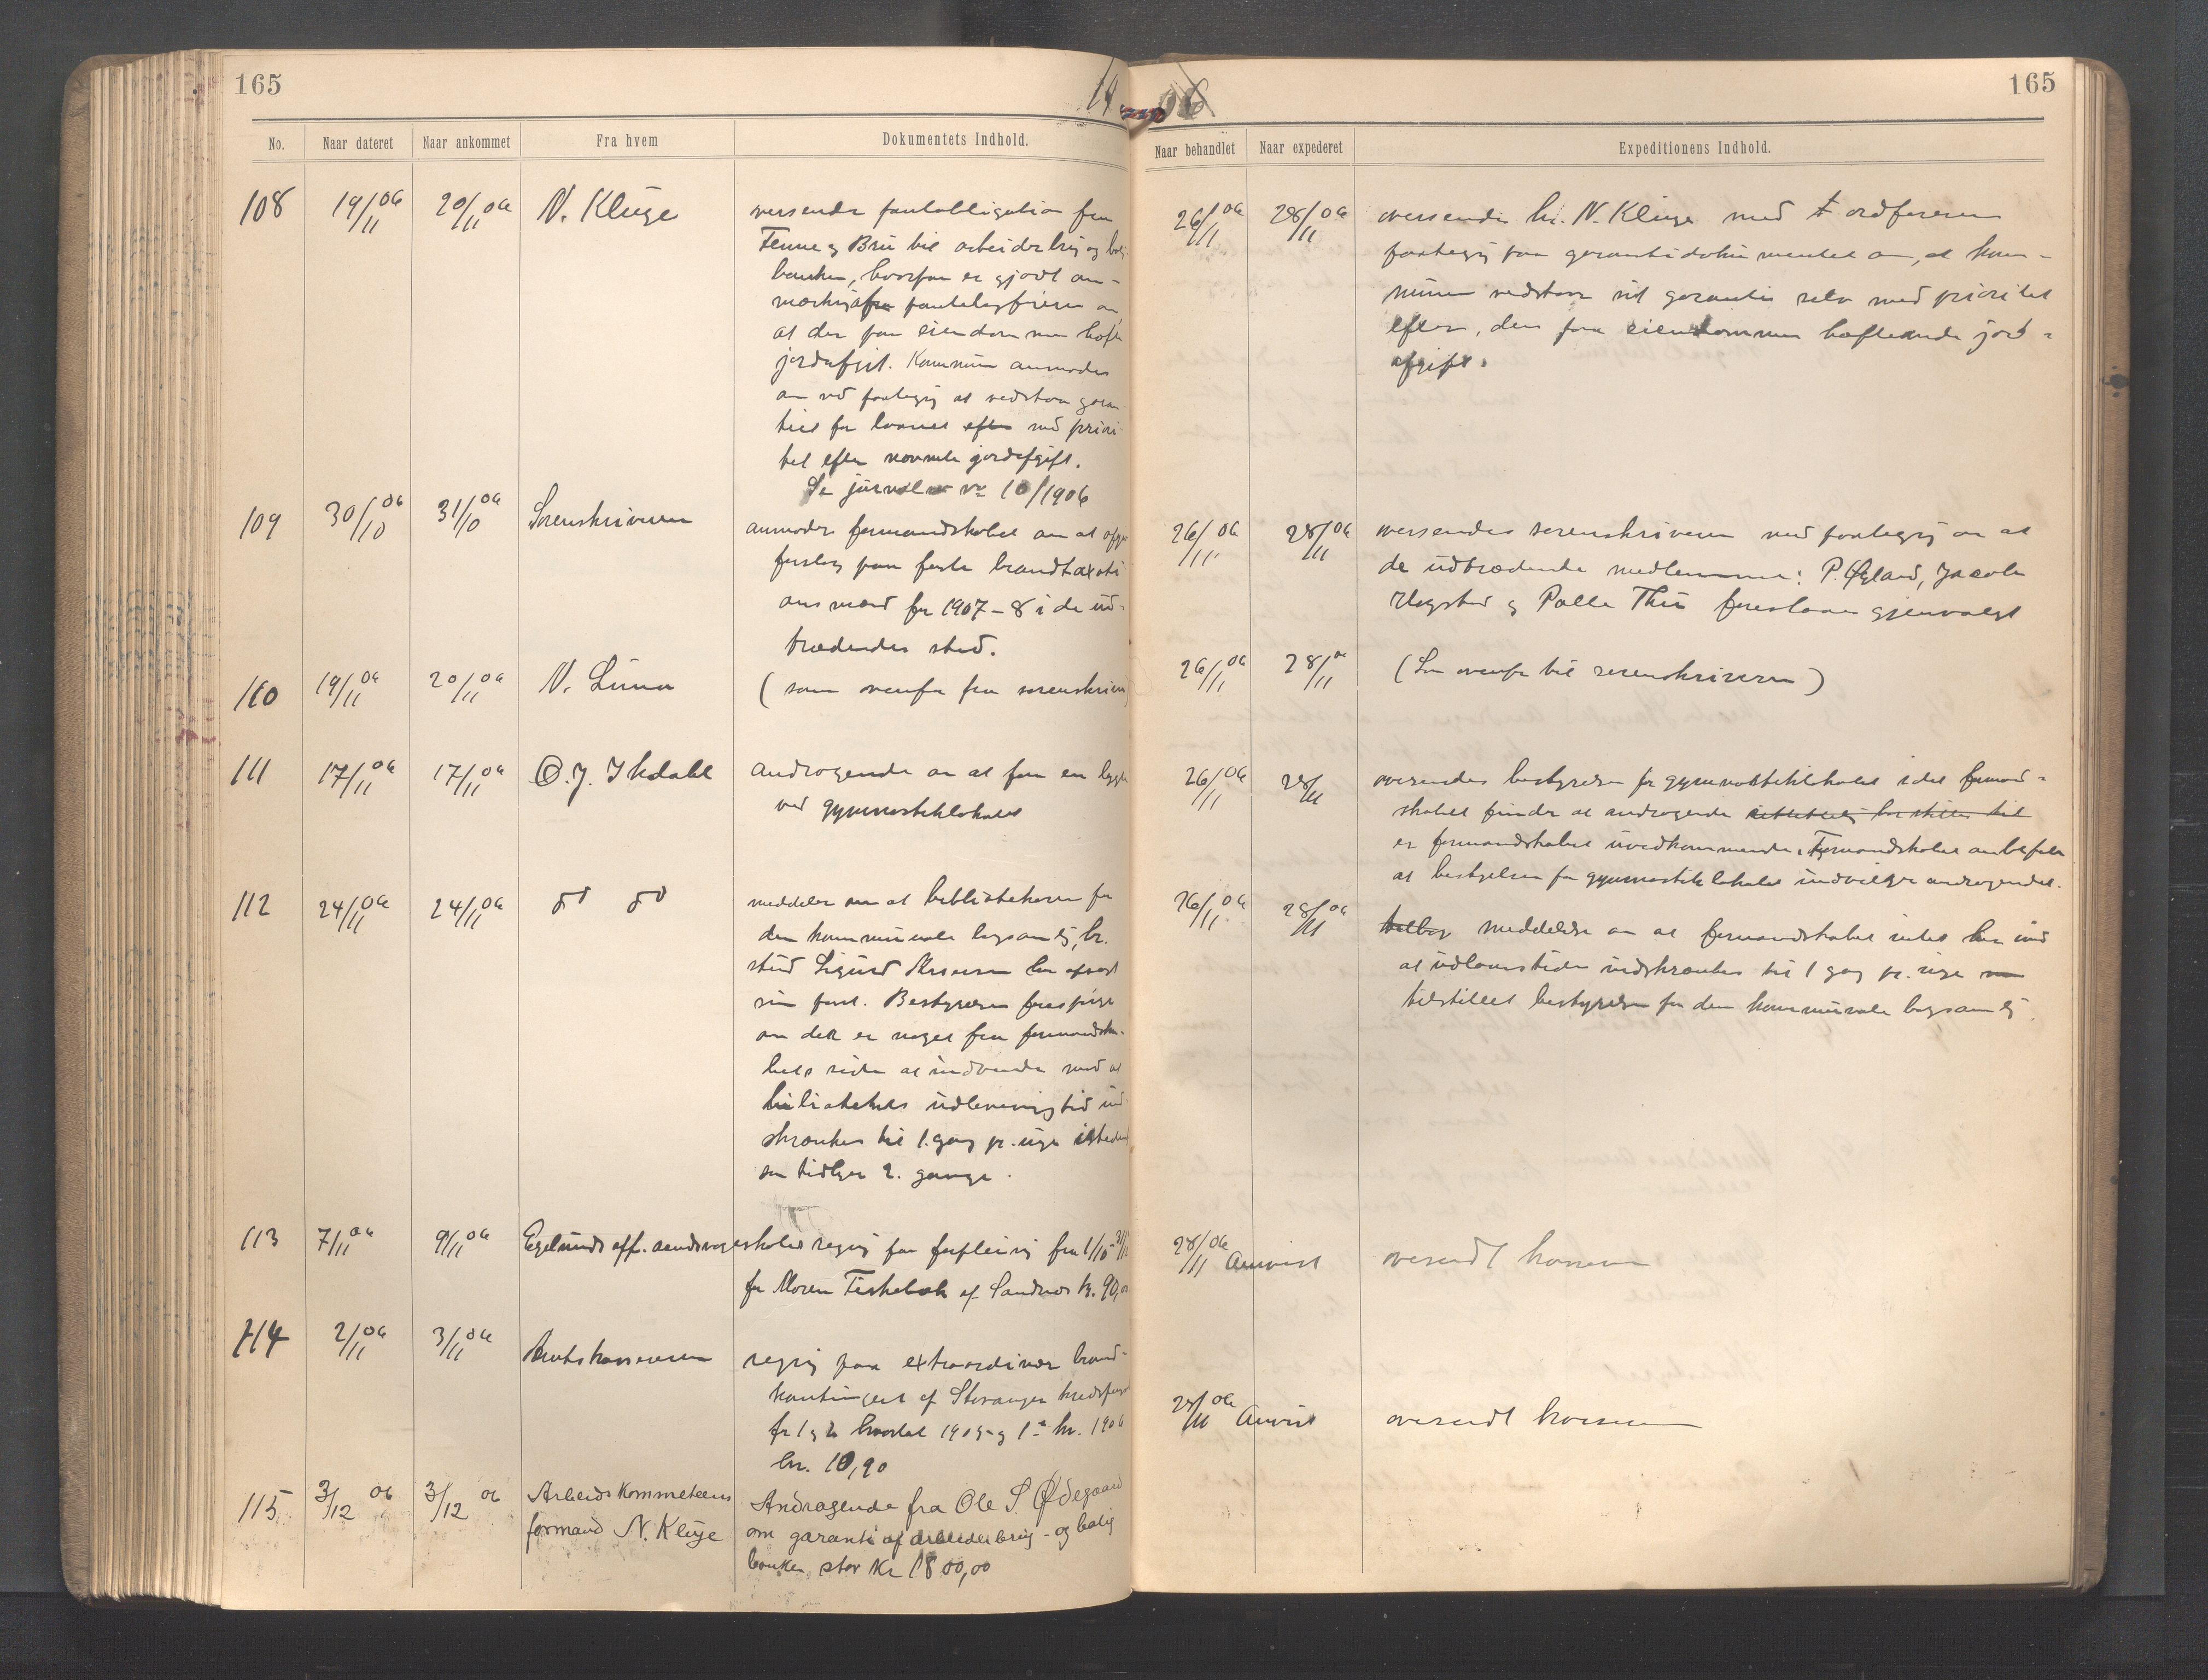 165
19
06
165
No.
Naar dateret
Naar ankommet
Fra hvem
Dokumentets Indhold.
Naar behandlet
Naar expederet
Expeditionens Indhold.
108
19/11 06
20/11 06
N. Kluge
oversender pantobligation fra
Tenne og Bru til arbeiderbrug og bolig
banken, hvorpaa er gjort an-
mærkning fra
at der paa eiendommen hefter
jordafgift. Kommunen anmodes
om ved paategning at vedstaa garan
tiel for laanet efter med priori
tet efter nævnte jordafgift.
Se journal nr 10/1906
26/11 06
28/11 06
oversendes hr. N. Kluge med ordførerens
paategning paa garantidokumentet om, at kom-
munen vedstaar sit garanti selv med prioritet
efter, den paa eiendommen heftende jord-
afgift.
109
30/10 06
31/10 06
Sorenskriveren
anmoder formandskabet om at afgi
forslag paa faste brandtaxati
onsmænd for 1907-8 i de ud-
trædendes sted.
26/11 06
28/11 06
oversendes sorenskriveren med paategning om at
de udtrædende medlemmer: P. Øgland, Jacob
og Palle Thu foreslaaes gjenvalgt
110
19/11 06
20/11 06
N. Lima
(som ovenfor fra sorenskriveren)
26/11 06
28/11 06
(Som ovenfor til sorenskriveren)
111
17/11 06
17/11 06
O. J. Ikdahl
andragende om at faa en lygte
ved gymnastiklokalet
26/11 06
28/11
oversendes bestyrelsen for gymnastiklokalet idet formand-
skabet finder at andragende
er formandskabet uvedkommende. Formandskabet anbefaler
at bestyrelsen for gymnastiklokalet indvilger andragendet.
112
24/11 06
24/11 06
do do
meddeler om at bibliotekaren for
den kommunale bogsamling, hr.
stud Sigurd har opsagt
sin post. Bestyrelsen forespørger
om det er noget fra formandska-
bets side at indvende mod at
bibliotekets udleveringstid ind
skrænkes til 1. gang pr. uge istedet
som tidligere 2. gange.
26/11 06
28/11 06
meddelelse om at formandskabet intet har imod
at udlaanstiden indskrænkes til 1 gang pr. uge
tilstillet bestyrelsen for den kommunale bogsamling.
113
7/11 06
9/11 06
Egelunds off. aandssvageskoles regning for forpleining fra 1/10-31/12
for Maren Fiskebæk af Sandnes kr. 90,00
28/11 06
Anvist
oversendt kasseren
114
2/11 06
3/11 06
Amtskassereren
regning paa extraordinær brand-
kontingent af Stavanger
for 1 og 2 kvartal 1905 og 1ste kv. 1906
kr. 10,90
28/11 06
Anvist
oversendt kasseren
115
3/12 06
3/12 06
Arbeidskommeteens
formand N. Kluge
Andragende fra Ole S. Ødegaard
om garanti af arbeiderbrug- og bolig
banken stor Kr 1800,00